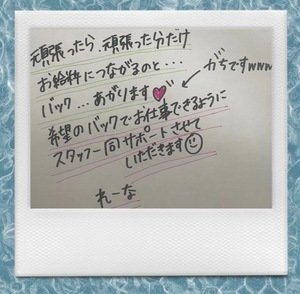 頑張ったら、頑張った分だけ
お給料につながるのと・・・
バック…あがります♡
がちですwww
希望のバックでお仕事できるように
スタッフ一同サポートさせて
いただきます☺
れーな